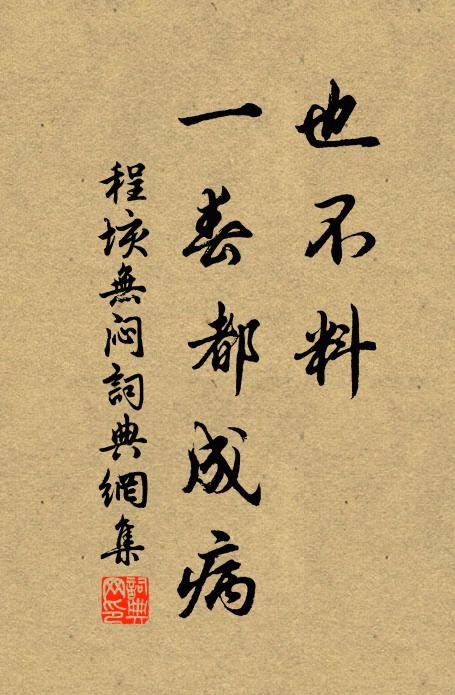 也不料
一春都成病
程垓無闷詞典網集
詞典網印